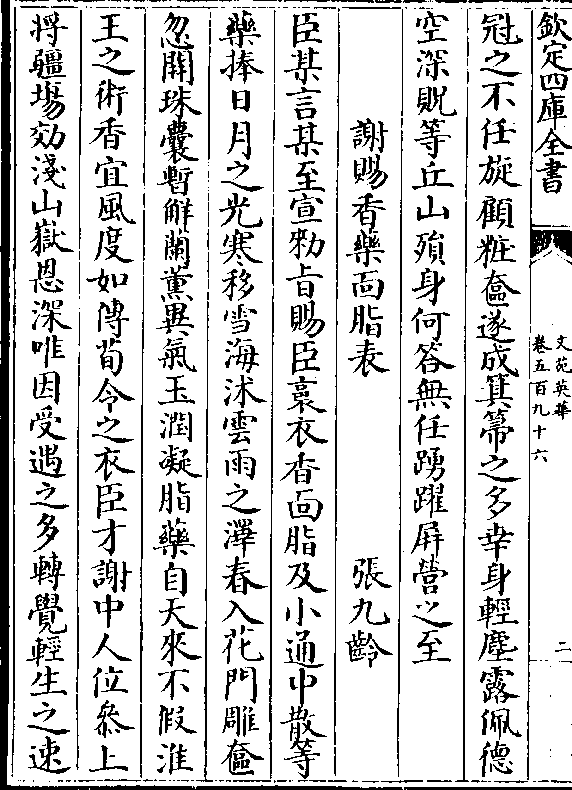 欽定四庫全書
文苑英華
卷五百九十六
二
冠之不任旋顧粧奩遂成箕箒之多幸身輕塵露佩德
空深貺等丘山殞身何答無任踴躍屏營之至
謝賜香藥面脂表 張九齡
臣某言某至宣勑旨賜臣裛衣香面脂及小通中散等
藥捧日月之光寒移雪海沐雲雨之澤春入花門雕奩
忽開珠囊暫解蘭薰異氣玉潤凝脂藥自天來不假淮
王之術香宜風度如傳荀令之衣臣才謝中人位叅上
将疆埸効淺山嶽恩深唯因受遇之多轉覺輕生之速